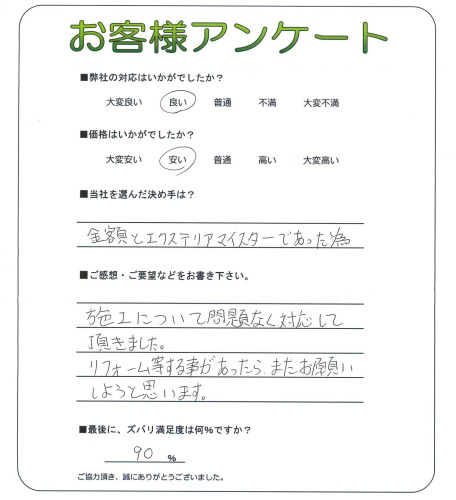 お客様アンケート
■弊社の対応はいかがでしたか？
大変良い 良い 普通 不満 大変不満
■価格はいかがでしたか？
大変安い 安い 普通 高い 大変高い
■当社を選んだ決め手は？
金額とエクステリアマイスターであった為
■ご感想・ご要望などをお書き下さい。
施工について問題なく対応して
頂きました。
リフォーム等する事があったら、またお願い
しようと思います。
■最後に、ズバリ満足度は何％ですか？
90 ％
ご協力頂き、誠にありがとうございました。